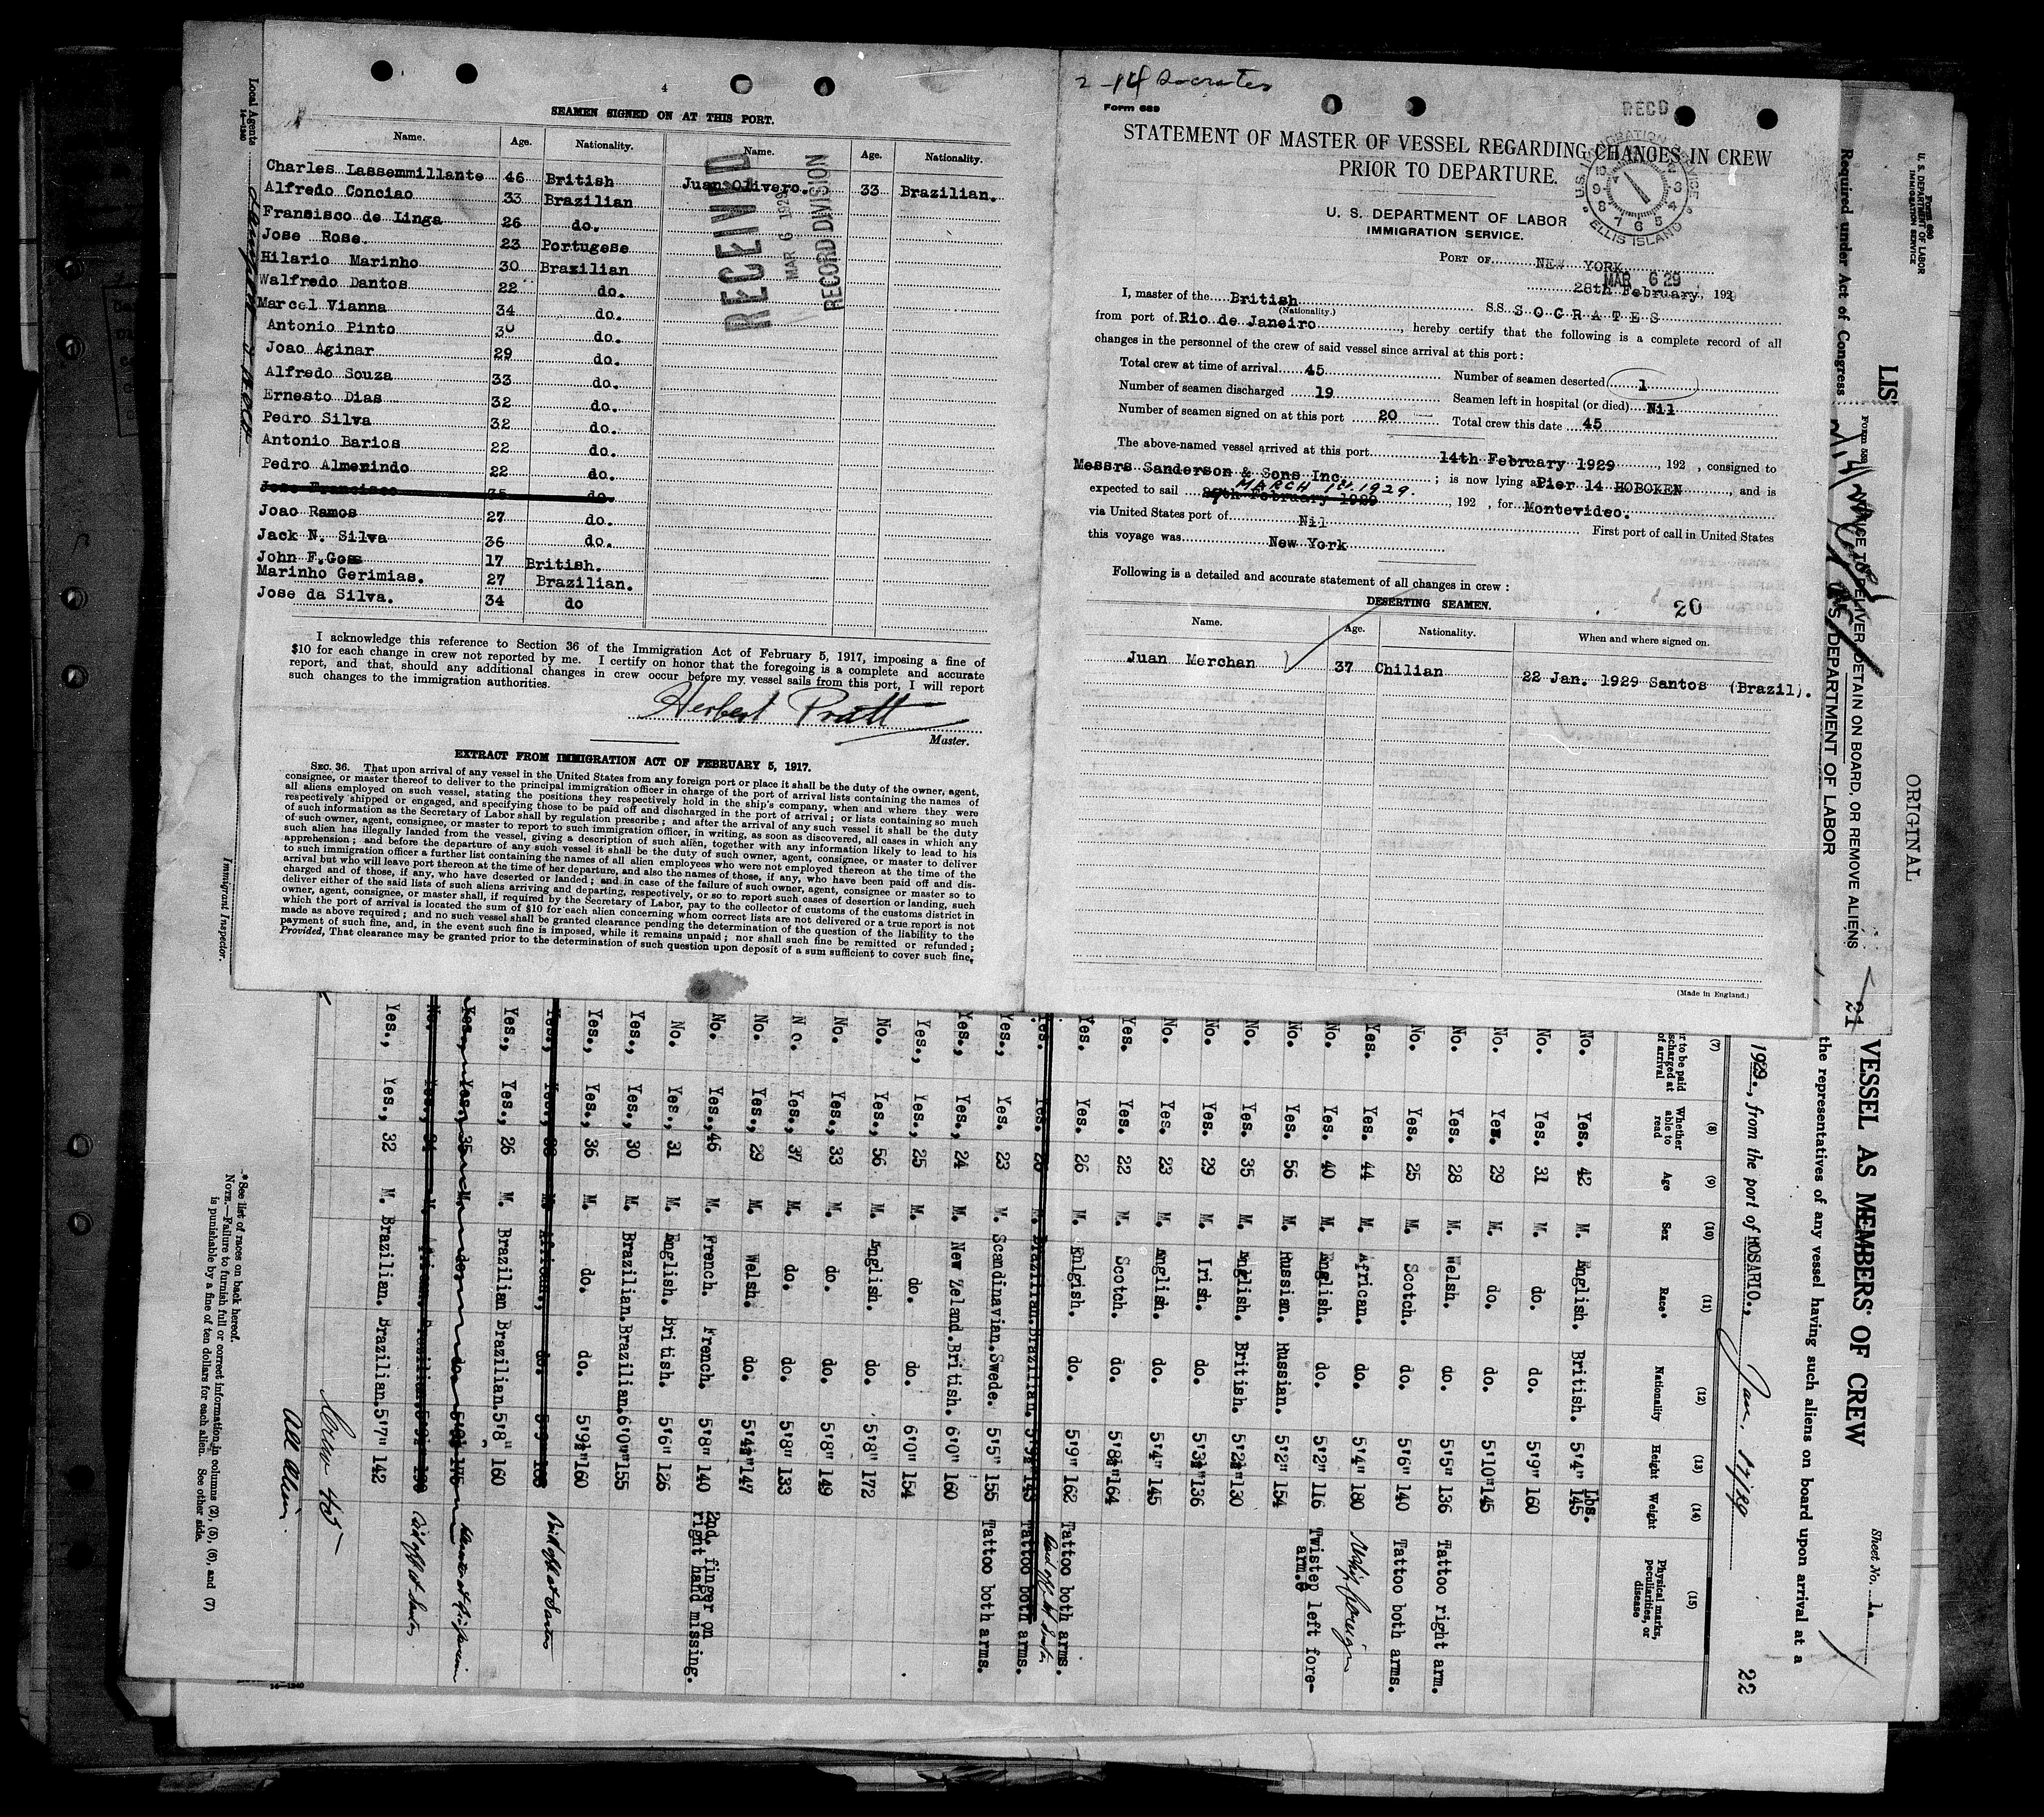 4
SEAMEN SIGNED ON AT THIS PORT.
Name. Age. Nationality. Name. Age. Nationality.
Charles Lassemmillante 46 British Juan Olivero. 33 Brazilian.
Alfredo Conciao 33 Brazilian
Fransisco de Linga 26 do.
Jose Rose 23 Portugese
Hilario Marinho 30 Brazilian
Walfredo Dantos 22 do.
Marcel Vianna 34 do.
Antonio Pinto 30 do.
Joao Aginar 29 do.
Alfredo Souza 33 do.
Ernesto Dias 32 do.
Pedro Silva 32 do.
Antonio Barios 22 do.
Pedro Almenindo 22 do.
Jose Francisco 35 do.
Joao Ramos 27 do.
Jack N. Silva 36 do.
John F.Goss 17 British.
Marinho Gerimias. 27 Brazilian.
Jose da Silva. 34 do
RECEIVED
MAR 6 1929
RECORD DIVISION
I acknowledge this reference to Section 36 of the Immigration Act of February 5, 1917, imposing a fine of
$10 for each change in crew not reported by me. I certify on honor that the foregoing is a complete and accurate
report, and that, should any additional changes in crew occur before my vessel sails from this port, I will report
such changes to the immigration authorities.
Herbert Pratt
Master.
EXTRACT FROM IMMIGRATION ACT OF FEBRUARY 5, 1917.
SEC. 36. That upon arrival of any vessel in the United States from any foreign port or place it shall be the duty of the owner, agent,
consignee, or master thereof to deliver to the principal immigration officer in charge of the port of arrival lists containing the names of
all aliens employed on such vessel, stating the positions they respectively hold in the ship's company, when and where they were
respectively shipped or engaged, and specifying those to be paid off and discharged in the port of arrival; or lists containing so much
of such information as the Secretary of Labor shall by regulation prescribe; and after the arrival of any such vessel it shall be the duty
of such owner, agent, consignee, or master to report to such immigration officer, in writing, as soon as discovered, all cases in which any
such alien has illegally landed from the vessel, giving a description of such alien, together with any information likely to lead to his
apprehension; and before the departure of any such vessel it shall be the duty of such owner, agent, consignee, or master to deliver
to such immigration officer a further list containing the names of all alien employees who were not employed thereon at the time of the
arrival but who will leave port thereon at the time of her departure, and also the names of those, if any, who have been paid off and dis-
charged and of those, if any, who have deserted or landed; and in case of the failure of such owner, agent, consignee or master so to
deliver either of the said lists of such aliens arriving and departing, respectively, or so to report such cases of desertion or landing, such
owner, agent, consignee, or master shall, if required by the Secretary of Labor, pay to the collector of customs of the customs district in
which the port of arrival is located the sum of $10 for each alien concerning whom correct lists are not delivered or a true report is not
made as above required; and no such vessel shall be granted clearance pending the determination of the question of the liability to the
payment of such fine, and, in the event such fine is imposed, while it remains unpaid; nor shall such fine be remitted or refunded;
Provided, That clearance may be granted prior to the determination of such question upon deposit of a sum sufficient to cover such fine.
Local Agents
14-1240
Immigrant Inspector.
2-14 Socrates
Form 689
STATEMENT OF MASTER OF VESSEL REGARDING CHANGES IN CREW
PRIOR TO DEPARTURE.
RECD
U.S. IMMIGRATION SERVICE
ELLIS ISLAND
U. S. DEPARTMENT OF LABOR
IMMIGRATION SERVICE.
PORT OF NEW YORK
MAR 6 29
28th February, 192
I, master of the British S.S. SOCRATES
(Nationality.)
from port of Rio de Janeiro, hereby certify that the following is a complete record of all
changes in the personnel of the crew of said vessel since arrival at this port:
Total crew at time of arrival 45 Number of seamen deserted 1
Number of seamen discharged 19 Seamen left in hospital (or died) Nil
Number of seamen signed on at this port 20 Total crew this date 45
The above-named vessel arrived at this port 14th February 1929, 192 , consigned to
Messrs Sanderson & Sons Inc. ; is now lying at Pier 14 HOBOKEN, and is
MARCH 1st. 1929.
expected to sail 28th February 1929, 192 , for Montevideo.
via United States port of Nil First port of call in United States
this voyage was New York
Following is a detailed and accurate statement of all changes in crew:
20
DESERTING SEAMEN.
Name. Age. Nationality. When and where signed on.
Juan Merchan 37 Chilian 22 Jan. 1929 Santos (Brazil).
(Made in England.)
Form 690
U. S. DEPARTMENT OF LABOR
IMMIGRATION SERVICE
Required under Act of Congress
LIS
ORIGINAL
Form 538
NOTICE TO DELIVER, DETAIN ON BOARD, OR REMOVE ALIENS
U. S. DEPARTMENT OF LABOR
21
Sheet No. 1a
VESSEL AS MEMBERS OF CREW
the representatives of any vessel having such aliens on board upon arrival at a
1929., from the port of ROSARIO., Jan. 17/29
22
(7) (8) (9) (10) (11) (12) (13) (14) (15)
r to be paid
scharged at
of arrival
Whether
able to
read
Age
Sex
Race*
Nationality
Height
Weight
Physical marks,
peculiarities, or
disease
Lbs.
No. Yes. 42 M. English. British. 5'4" 145
No. Yes. 31 M. do. do. 5'9" 160
No. Yes. 29 M. do. do. 5'10" 145
No. Yes. 28 M. Welsh. do. 5'5" 136 Tattoo right arm.
No. Yes. 25 M. Scotch. do. 5'6" 140 Tattoo both arms.
Yes. Yes. 44 M. African. do. 5'4" 180
No. Yes. 40 M. English. do. 5'2" 116 Twistep left fore-
arm.
No. Yes. 56 M. Russian. Russian. 5'2" 154
No. Yes. 35 M. English. British. 5'2½" 130
No. Yes. 29 M. Irish. do. 5'3½" 136
No. Yes. 23 M. English. do. 5'4" 145
Yes. Yes. 22 M. Scotch. do. 5'8½" 164
Yes. Yes. 26 M. Enlgish. do. 5'9" 162 Tattoo both arms.
Yes. Yes. 26 M. Brazilian. Brazilian. 5'9½" 143 Tattoo both arms.
Yes., Yes. 23 M. Scandinavian. Swede. 5'5" 155 Tattoo both arms.
Yes., Yes., 24 M. New Zeland. British. 6'0" 160
Yes., Yes. 25 M. do. do. 6'0" 154
No. Yes., 56 M. English. do. 5'8" 172
No. Yes., 33 M. do. do. 5'8" 149
No. Yes., 37 M. do. do. 5'8" 133
No. Yes., 29 M. Welsh. do. 5'4½" 147
No. Yes., 46 M. French. French. 5'8" 140 2nd. finger on
right hand missing.
No. Yes., 31 M. English. British. 5'6" 126
Yes., Yes., 30 M. Brazilian. Brazilian. 6'0" 155
Yes., Yes., 36 M. do. do. 5'9½" 160
Yes., Yes., M. African., do. Paid off at Santos
Yes., Yes., 26 M. Brazilian Brazilian. 5'8" 160
Yes., Yes., 35 M. do. do.
No. Yes., M. African. Brazilian. Paid off at Santos
Yes., Yes., 32 M. Brazilian. Brazilian. 5'7" 142
Crew 45
All Alien.
*See list of races on back hereof.
NOTE.—Failure to furnish full or correct information in columns (2), (5), (6), and (7)
is punishable by a fine of ten dollars for each alien. See other side.
14-1240